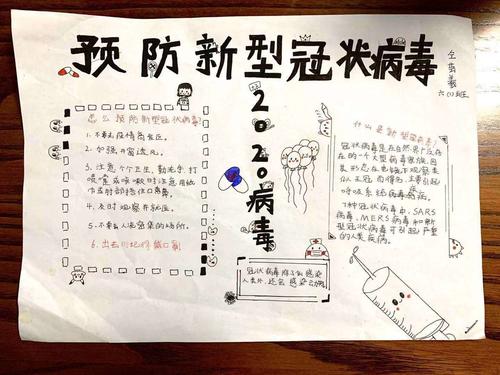 预防新型冠状病毒
六(1)班
2020病毒
怎么预防新型冠状病毒?
1.不要去疫情高发区。
2.加强开窗通风。
3.注意个人卫生,勤洗手,打
喷嚏或咳嗽时注意用纸
巾或肘部捂住口鼻。
4.及时观察并就医。
5.不要去人流密集的场所。
6.出去以记得戴口罩!
什么是新型病毒?
冠状病毒是在自然界广泛存
在的一个大型病毒家族,因
其形态在电镜下观察类
似王冠而得名,主要引起
呼吸系统病毒感病。
7种冠状病毒中,SARS
病毒、MERS病毒和新
型冠状病毒可引起严重
的人类疾病。
冠状病毒除了似感染
人类外,还会感染动物